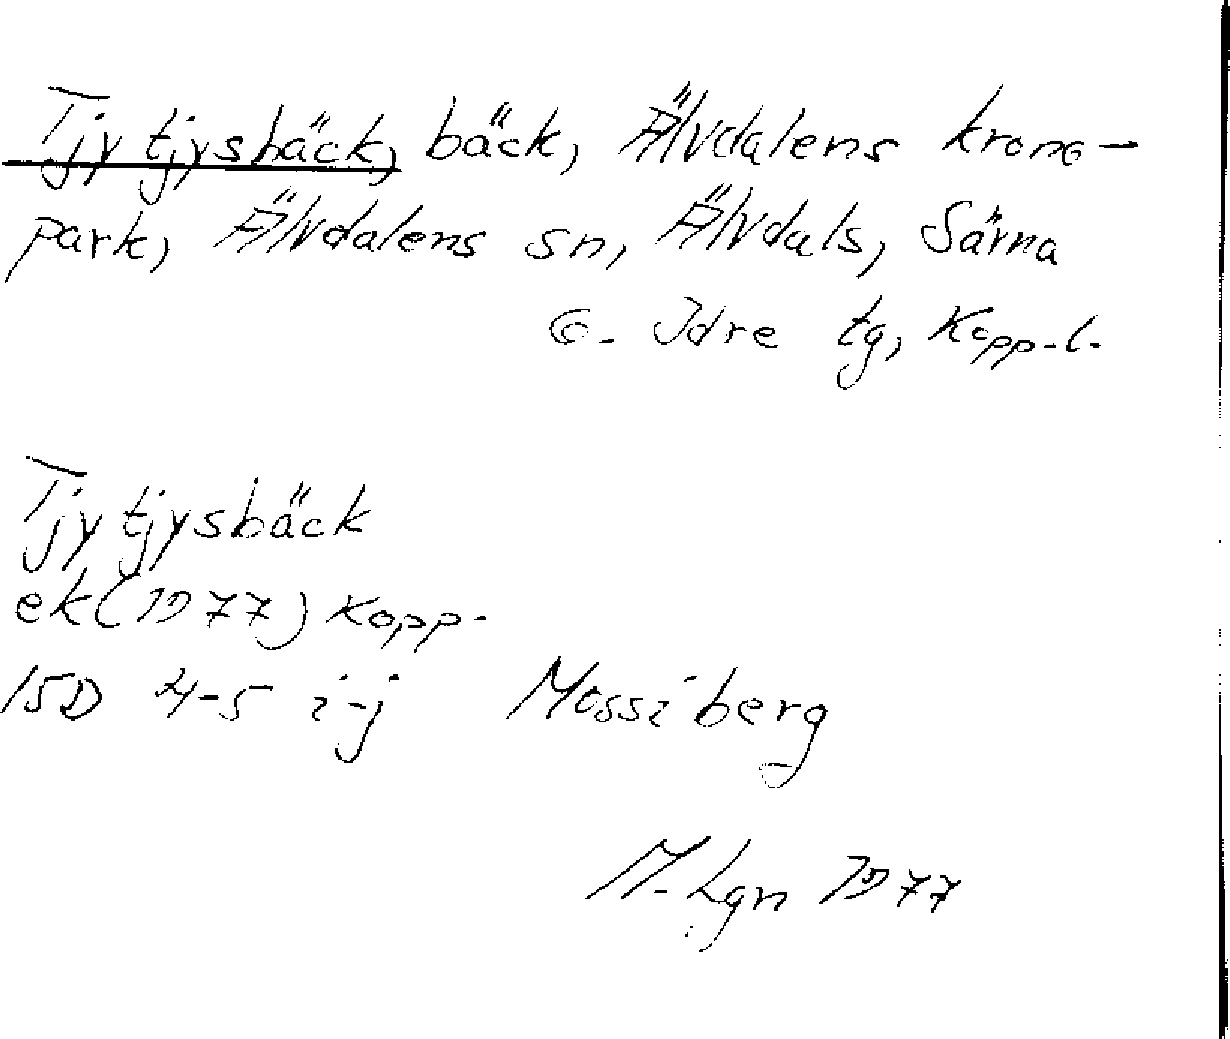 Tjytjysbäck, bäck, Älvdalens krono-
park, Älvdalens sn, Älvdals, Särna
o. Idre tg, Kopp. l.
Tjytjysbäck
ek (1977) Kopp.
15D 4-5 i-j Mossiberg
M. Lgn 1977